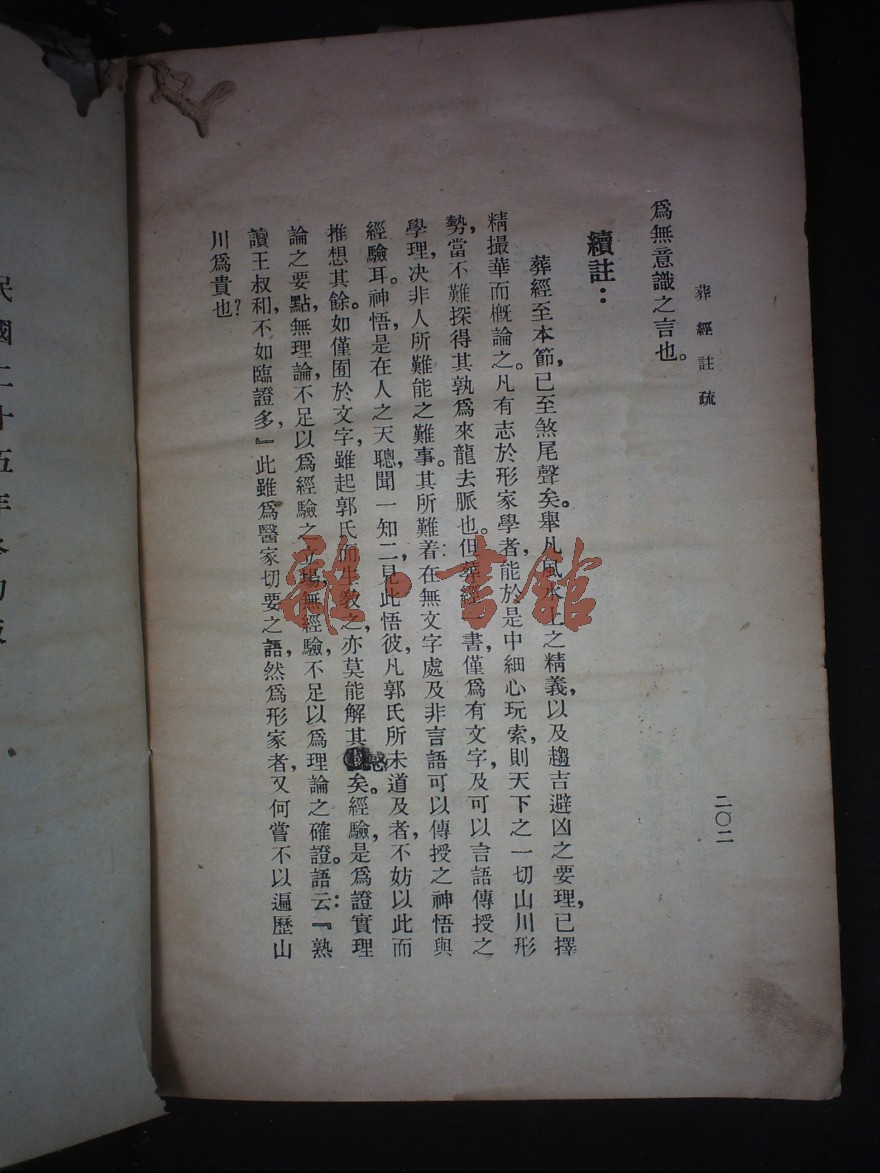 葬經註疏
二〇二
爲無意識之言也。
續註：
葬經至本節，已至煞尾聲矣。舉凡風水上之精義，以及趨吉避凶之要理，已擇
精撮華而概論之。凡有志於形家學者，能於是中細心玩索，則天下之一切山川形
勢，當不難探得其孰爲來龍去脈也。但葬經一書，僅爲有文字，及可以言語傳授之
學理，決非人所難能之難事。其所難着：在無文字處及非言語可以傳授之神悟與
經驗耳。神悟是在人之天聰，聞一知二，見此悟彼，凡郭氏所未道及者，不妨以此而
推想其餘。如僅囿於文字，雖起郭氏而生敎之，亦莫能解其惑矣。經驗，是爲證實理
論之要點，無理論不足以爲經驗之立場，無經驗，不足以爲理論之確證。語云：『熟
讀王叔利，不如臨證多，』此雖爲醫家切要之語，然爲形家者，又何嘗不以遍歷山
川爲貴也？
民國二十五年
雜·書館